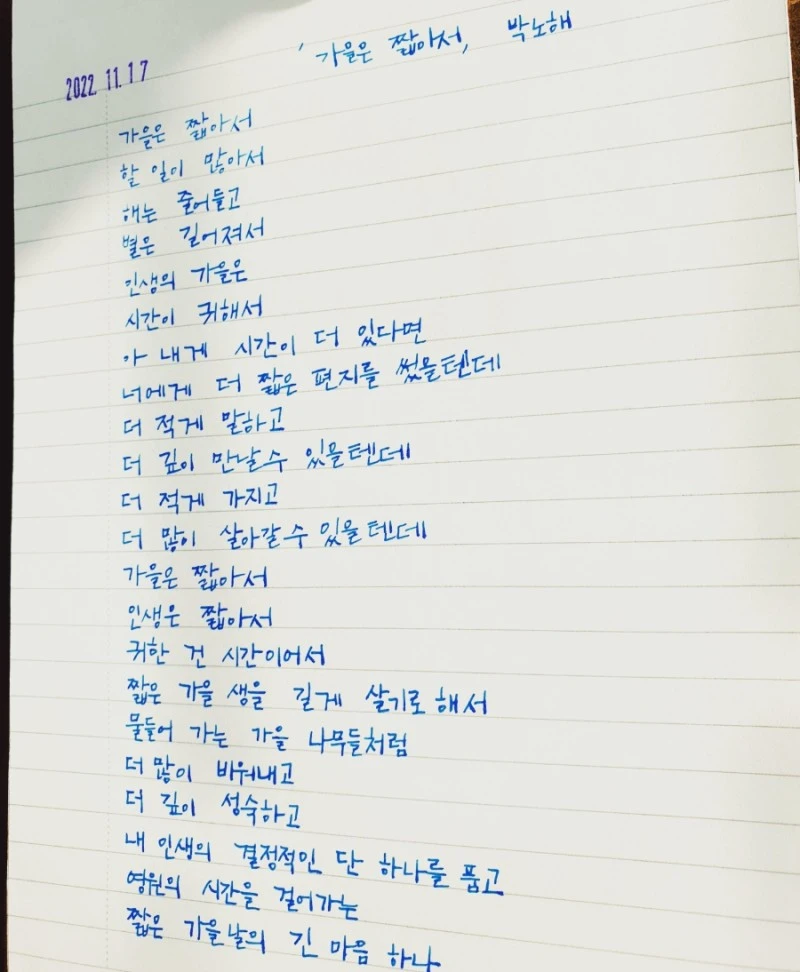 '가을은 짧아서, 박노해
2022. 11. 17
가을은 짧아서
할 일이 많아서
해는 줄어들고
별은 길어져서
인생의 가을은
시간이 귀해서
아 내게 시간이 더 있다면
너에게 더 짧은 편지를 썼을텐데
더 적게 말하고
더 깊이 만날수 있을텐데
더 적게 가지고
더 많이 살아갈수 있을텐데
가을은 짧아서
인생은 짧아서
귀한 건 시간이어서
짧은 가을 생을 길게 살기로 해서
물들어 가는 가을 나무들처럼
더 많이 비워내고
더 깊이 성숙하고
내 인생의 결정적인 단 하나를 품고
영원의 시간을 걸어가는
짧은 가을날의 긴 마음 하나